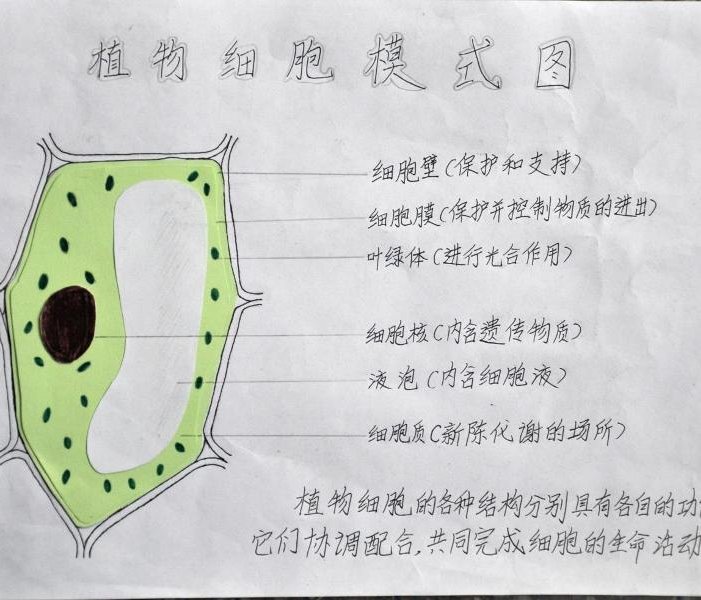 植物细胞模式图
细胞壁(保护和支持)
细胞膜(保护并控制物质的进出)
叶绿体(进行光合作用)
细胞核(内含遗传物质)
液泡(内含细胞液)
细胞质(新陈代谢的场所)
植物细胞的各种结构分别具有各自的功
它们协调配合,共同完成细胞的生命活动